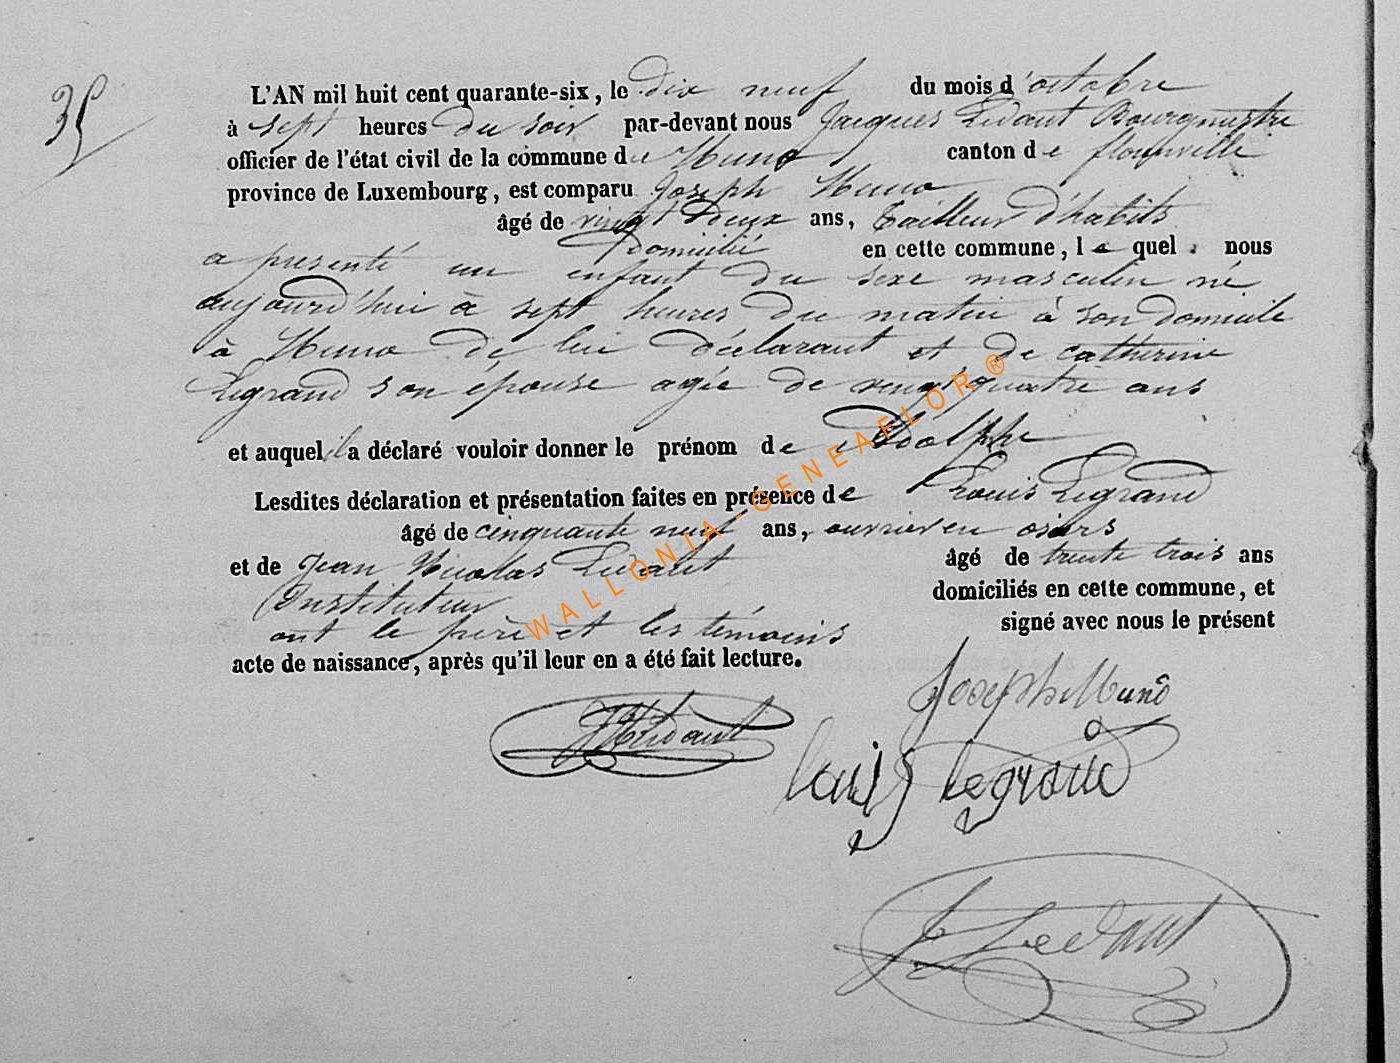 35
L'AN mil huit cent quarante-six, le dix neuf du mois d'octobre
à sept heures du soir par-devant nous Jacques Lédant Bourgmestre
officier de l'état civil de la commune de Muno canton de florenville
province de Luxembourg, est comparu Joseph Muno
âgé de vingt deux ans, tailleur d'habits
domicilié en cette commune, lequel nous
a presenté un enfant du sexe masculin né
aujourd'hui à sept heures du matin à son domicile
à Muno de lui déclarant et de catherine
Legrand son épouse agée de vingt quatre ans
et auquel il a déclaré vouloir donner le prénom de Adolphe
Lesdites déclaration et présentation faites en présence de Louis Legrand
âgé de cinquante neuf ans, ouvrier en
et de Jean Nicolas âgé de trente trois ans
Instituteur domiciliés en cette commune, et
ont le père et les témoins signé avec nous le présent
acte de naissance, après qu'il leur en a été fait lecture.
Joseph Muno
Louis Legrand
Ledant
WALLONIA-GENEAFLOR ®